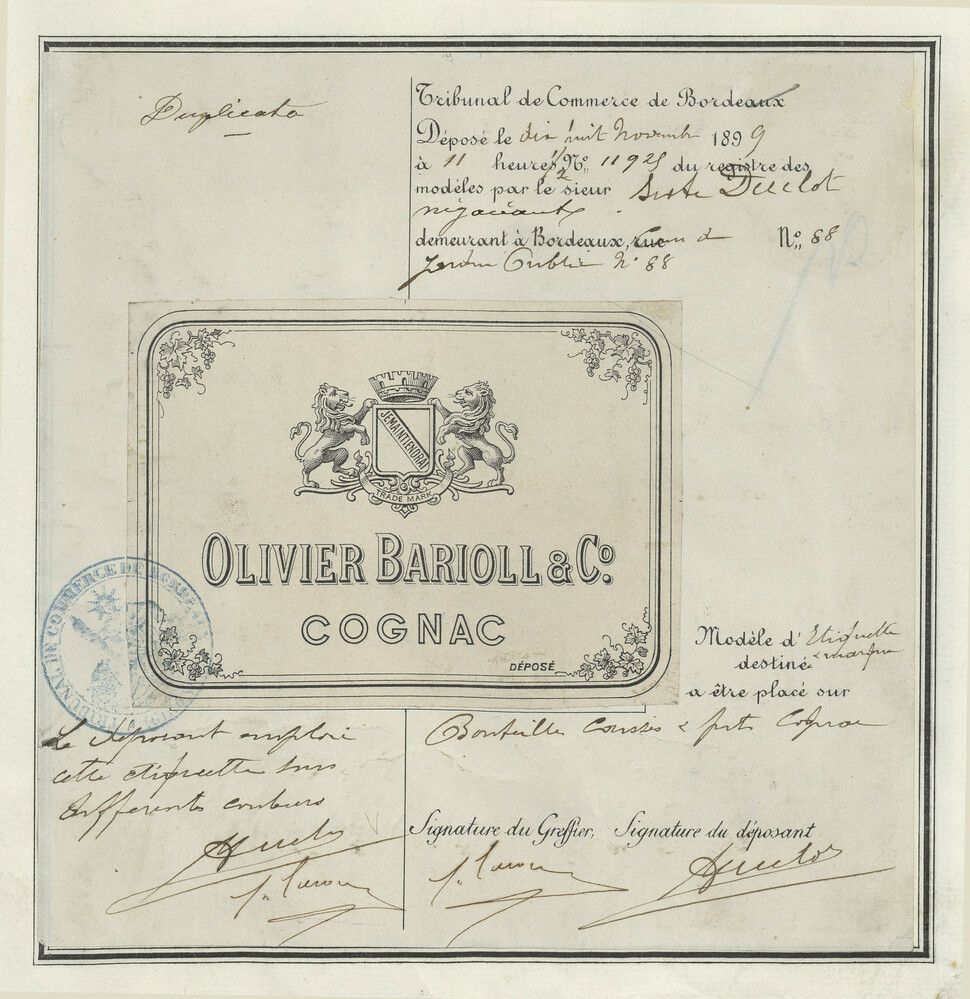 Duplicata
Tribunal de Commerce de Bordeaux
Déposé le dix huit Novembre 1899
à 11 heures 1/2 N° 11925 du registre des
modèles par le sieur Duclot
négociant
demeurant à Bordeaux, rue Cours du N° 88
Jardin Public N° 88
JE MAINTIENDRAI
TRADE MARK
OLIVIER BARIOLL & Cº
COGNAC
DÉPOSÉ
TRIBUNAL DE COMMERCE DE BORDEAUX
Modèle d'Etiquette
destiné & marque
a être placé sur
Bouteilles caisses & futs Cognac
Le déposant emploie
cette étiquette sous
différents couleurs
Signature du Greffier, Signature du déposant